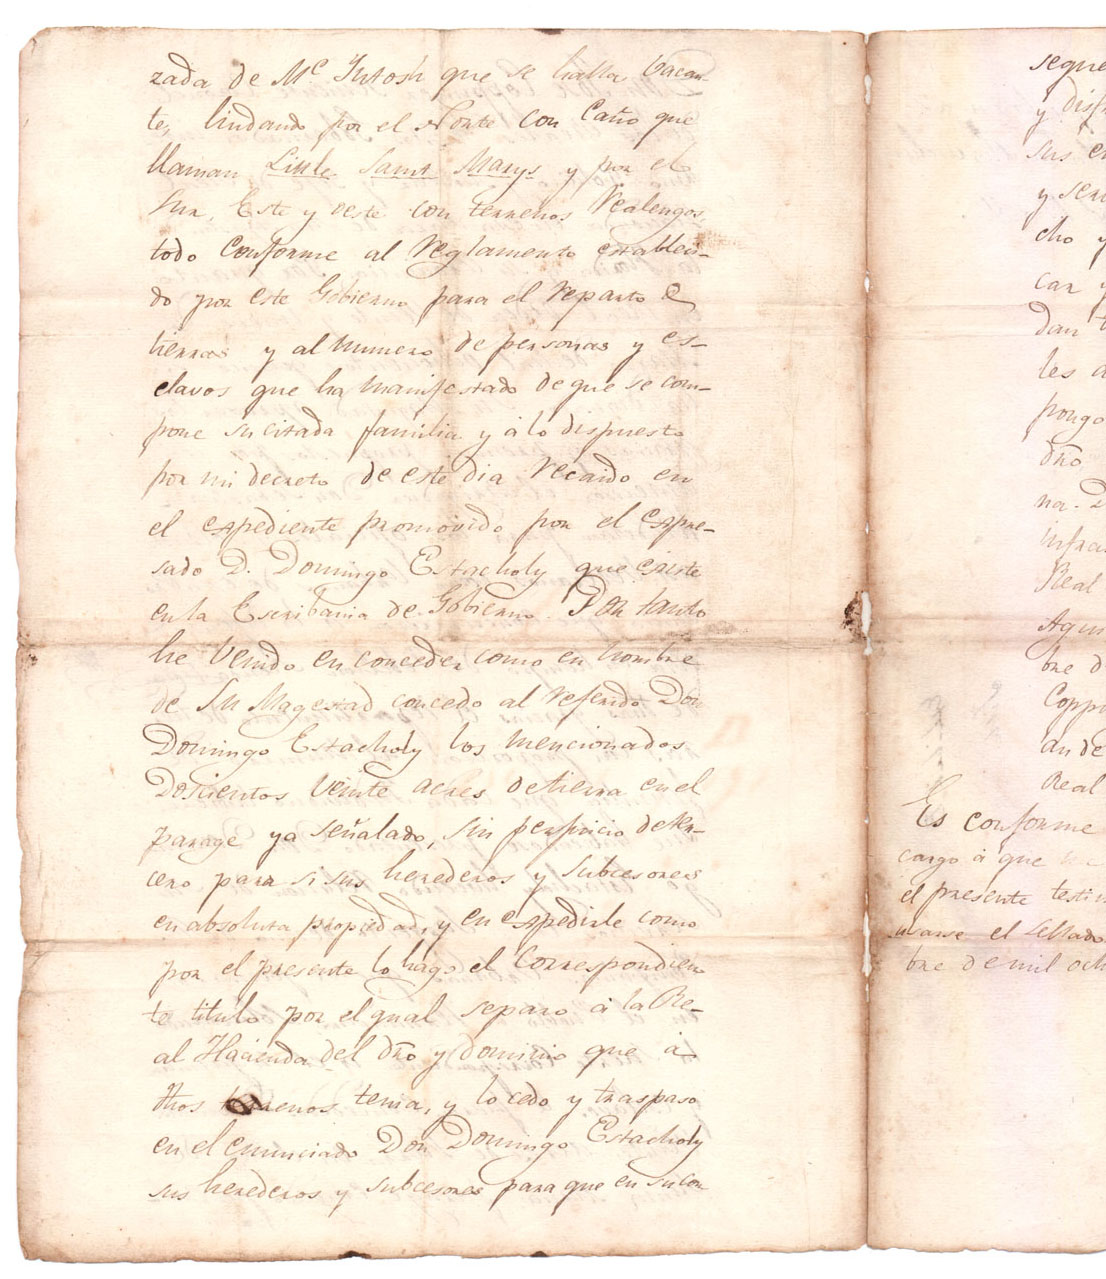 zada de Mc Intosh que se halla bacan-
te, lindando por el Norte con Caño que
llaman Little Saint Marys y por el
Sur, Este y oeste con terrenos realengos,
todo conforme al reglamento estableci-
do por este Gobierno para el reparto de
tierras y al numero de personas y es-
clavos que ha manifestado de que se com-
pone su citada familia y á lo dispuesto
por mi decreto de este dia recaido en
el expediente promovido por el expre-
sado D. Domingo Estacholy que existe
en la Escribania de Gobierno. Por tanto
he venido en conceder como en nombre
de Su Magestad concedo al referido Don
Domingo Estacholy los mencionados
Dosientos veinte acres de tierra en el
parage ya señalado, sin perjuicio de ter-
cero para si sus herederos y subcesores
en absoluta propiedad, y en expedirle como
por el presente lo hago el Correspondien
te titulo por el qual separo á la Re-
al Hacienda del dro y dominio que á
dhos terrenos tenia, y lo cedo y traspaso
en el enunciado Don Domingo Estacholy
sus herederos y subcesores para que en su con
segue
y disf
sus
y ser
cho y
car y
dan
les
pongo
dro
na. D
infras
Real
Agus
bre d
Coppi
an de
Real
Es conforme
cargo á que
el presente testi
usarse el Sellado
bre de mil och